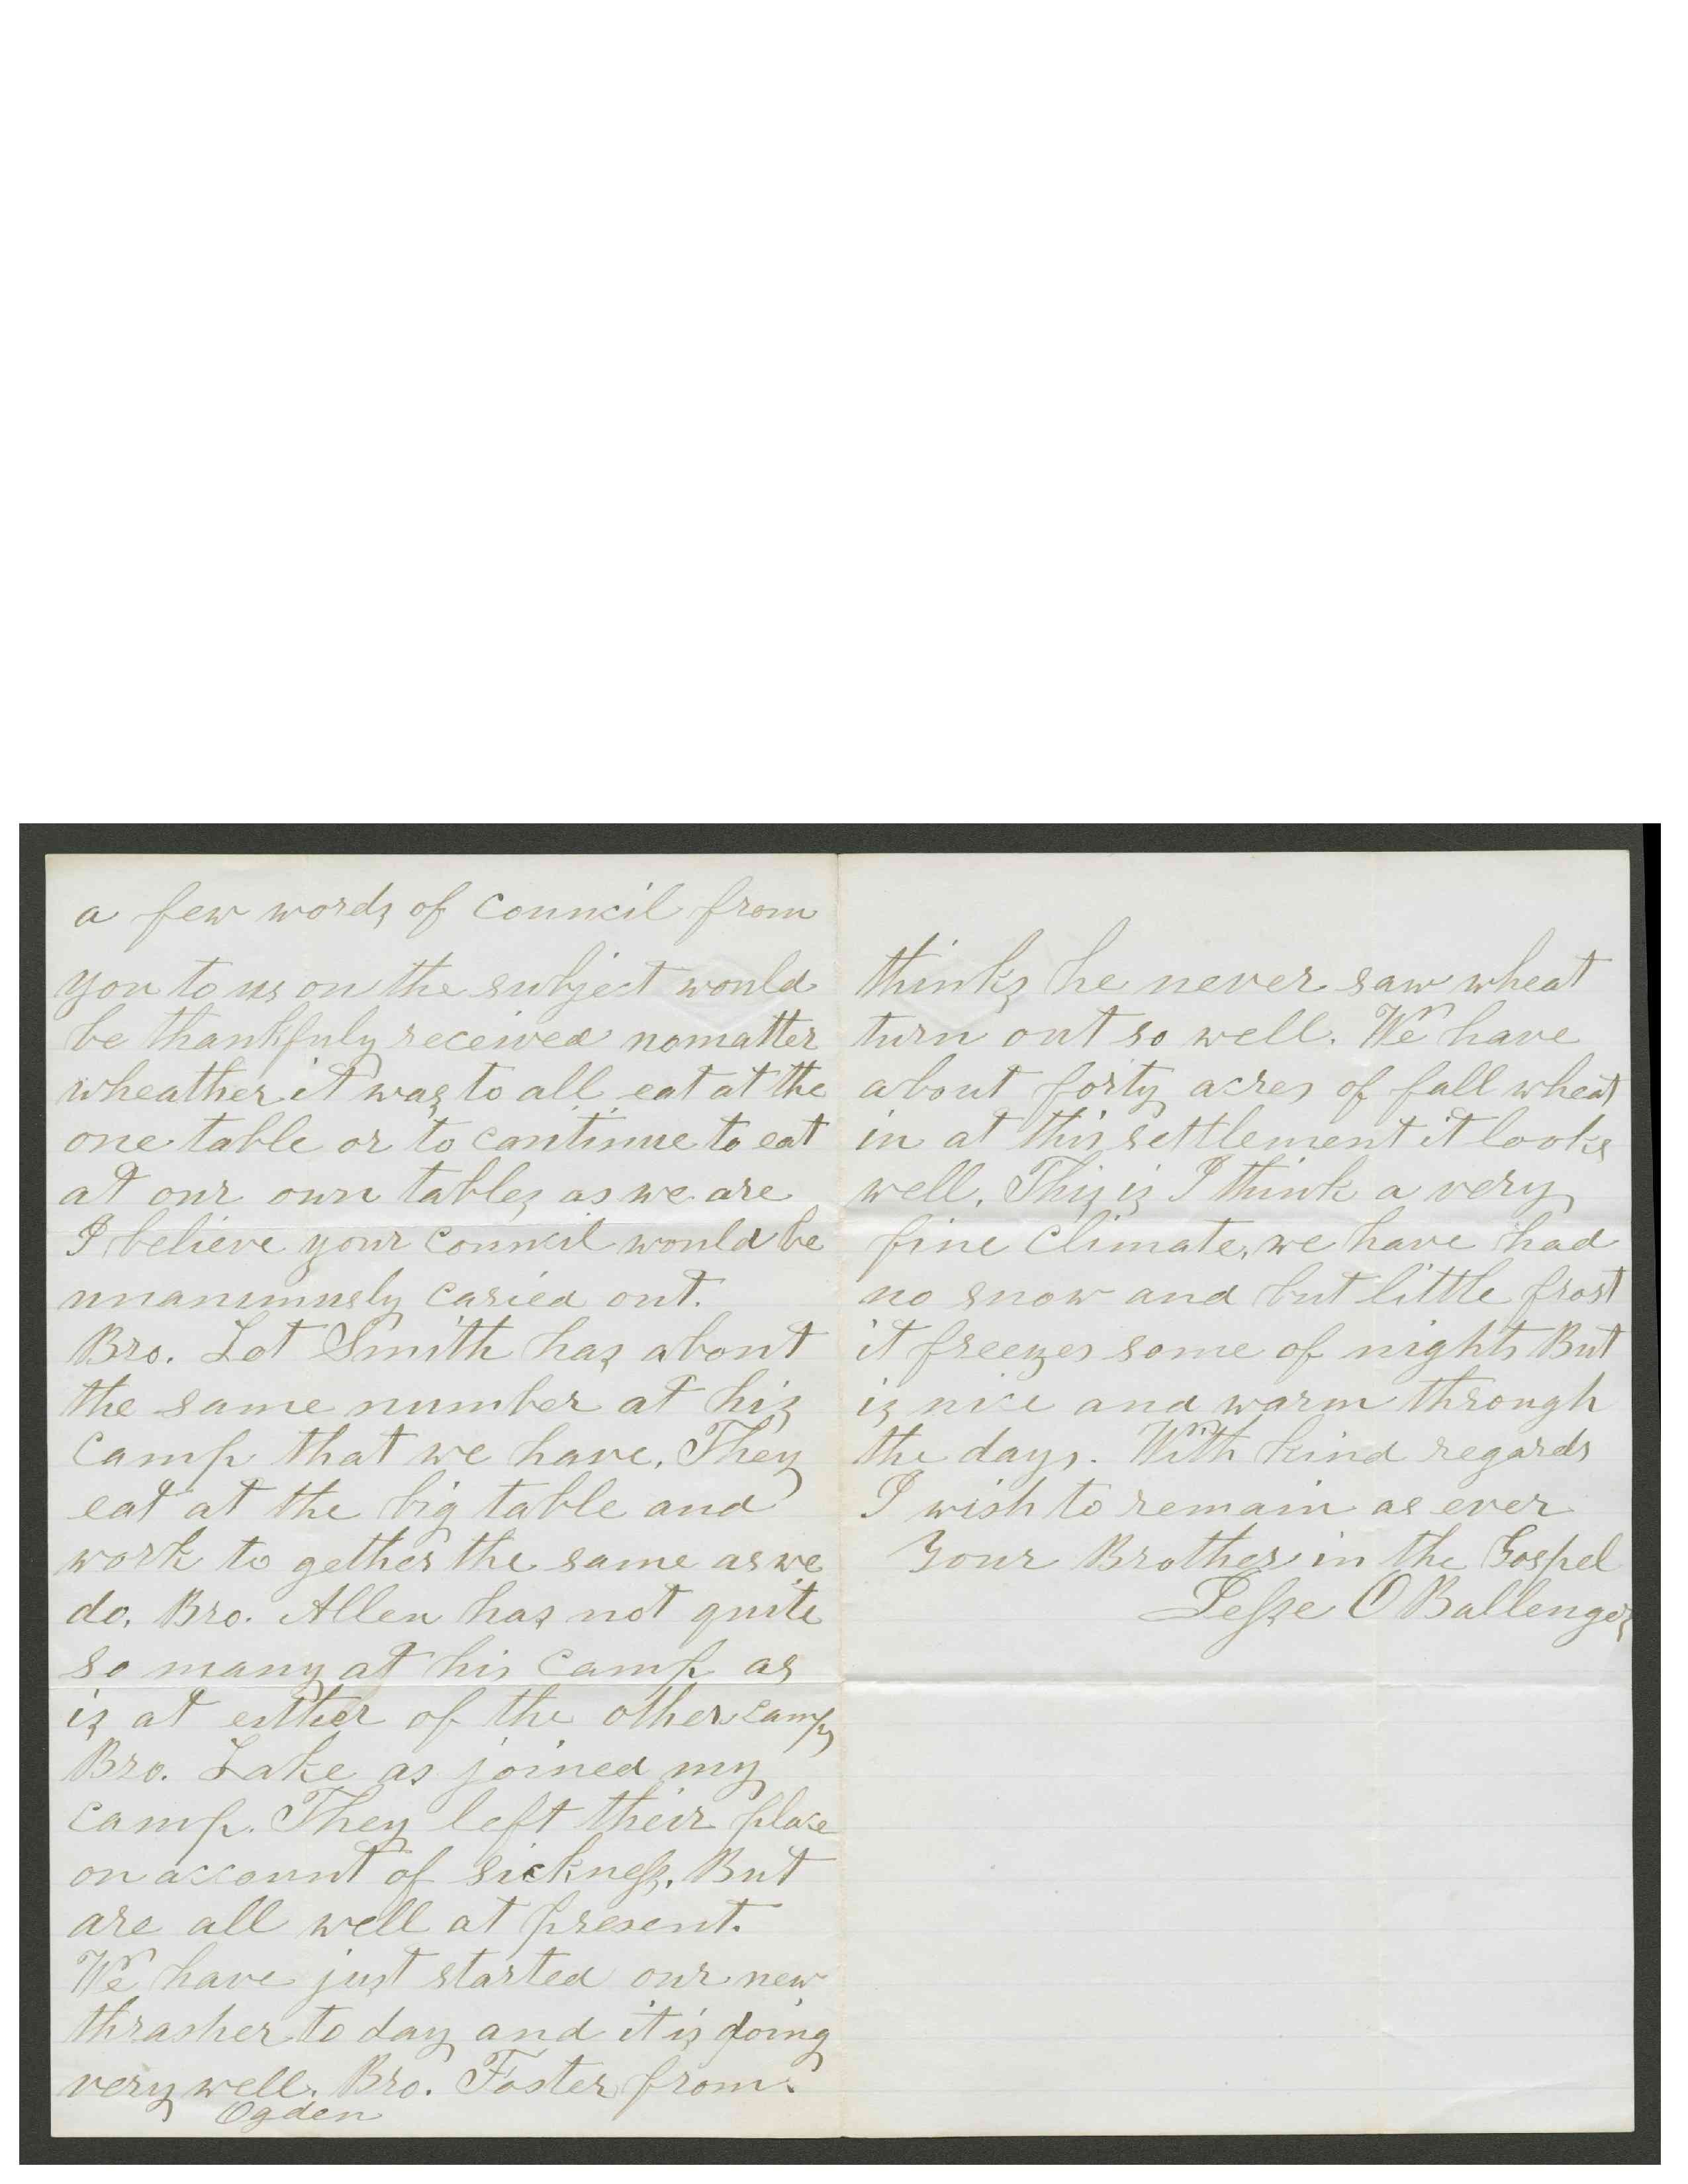 a few words of Council from
you to us on the subject would
be thankfuly received nomatter
wheather it was to all eat at the
one table or to continue to eat
at our own tables as we are
I believe your Council would be
unanimusly caried out.
Bro. Lot Smith has about
the same number at his
Camp that we have. They
eat at the big table and
work to gether the same as we
do. Bro. Allen has not quite
so many at his Camp as
is at either of the other camps
Bro. Lake as joined my
Camp. They left their place
on account of sickness. But
are all well at present.
We have just started our new
thrasher to day and it is doing
very well. Bro. Foster from
Ogden
thinks he never saw wheat
turn out so well. We have
about forty acres of fall wheat
in at this settlement it looks
well. This is I think a very
fine Climate, we have had
no snow and but little frost
it freezes some of nights But
is nice and warm through
the days. With kind regards
I wish to remain as ever
Your Brother in the Gospel
Jesse O Ballenger